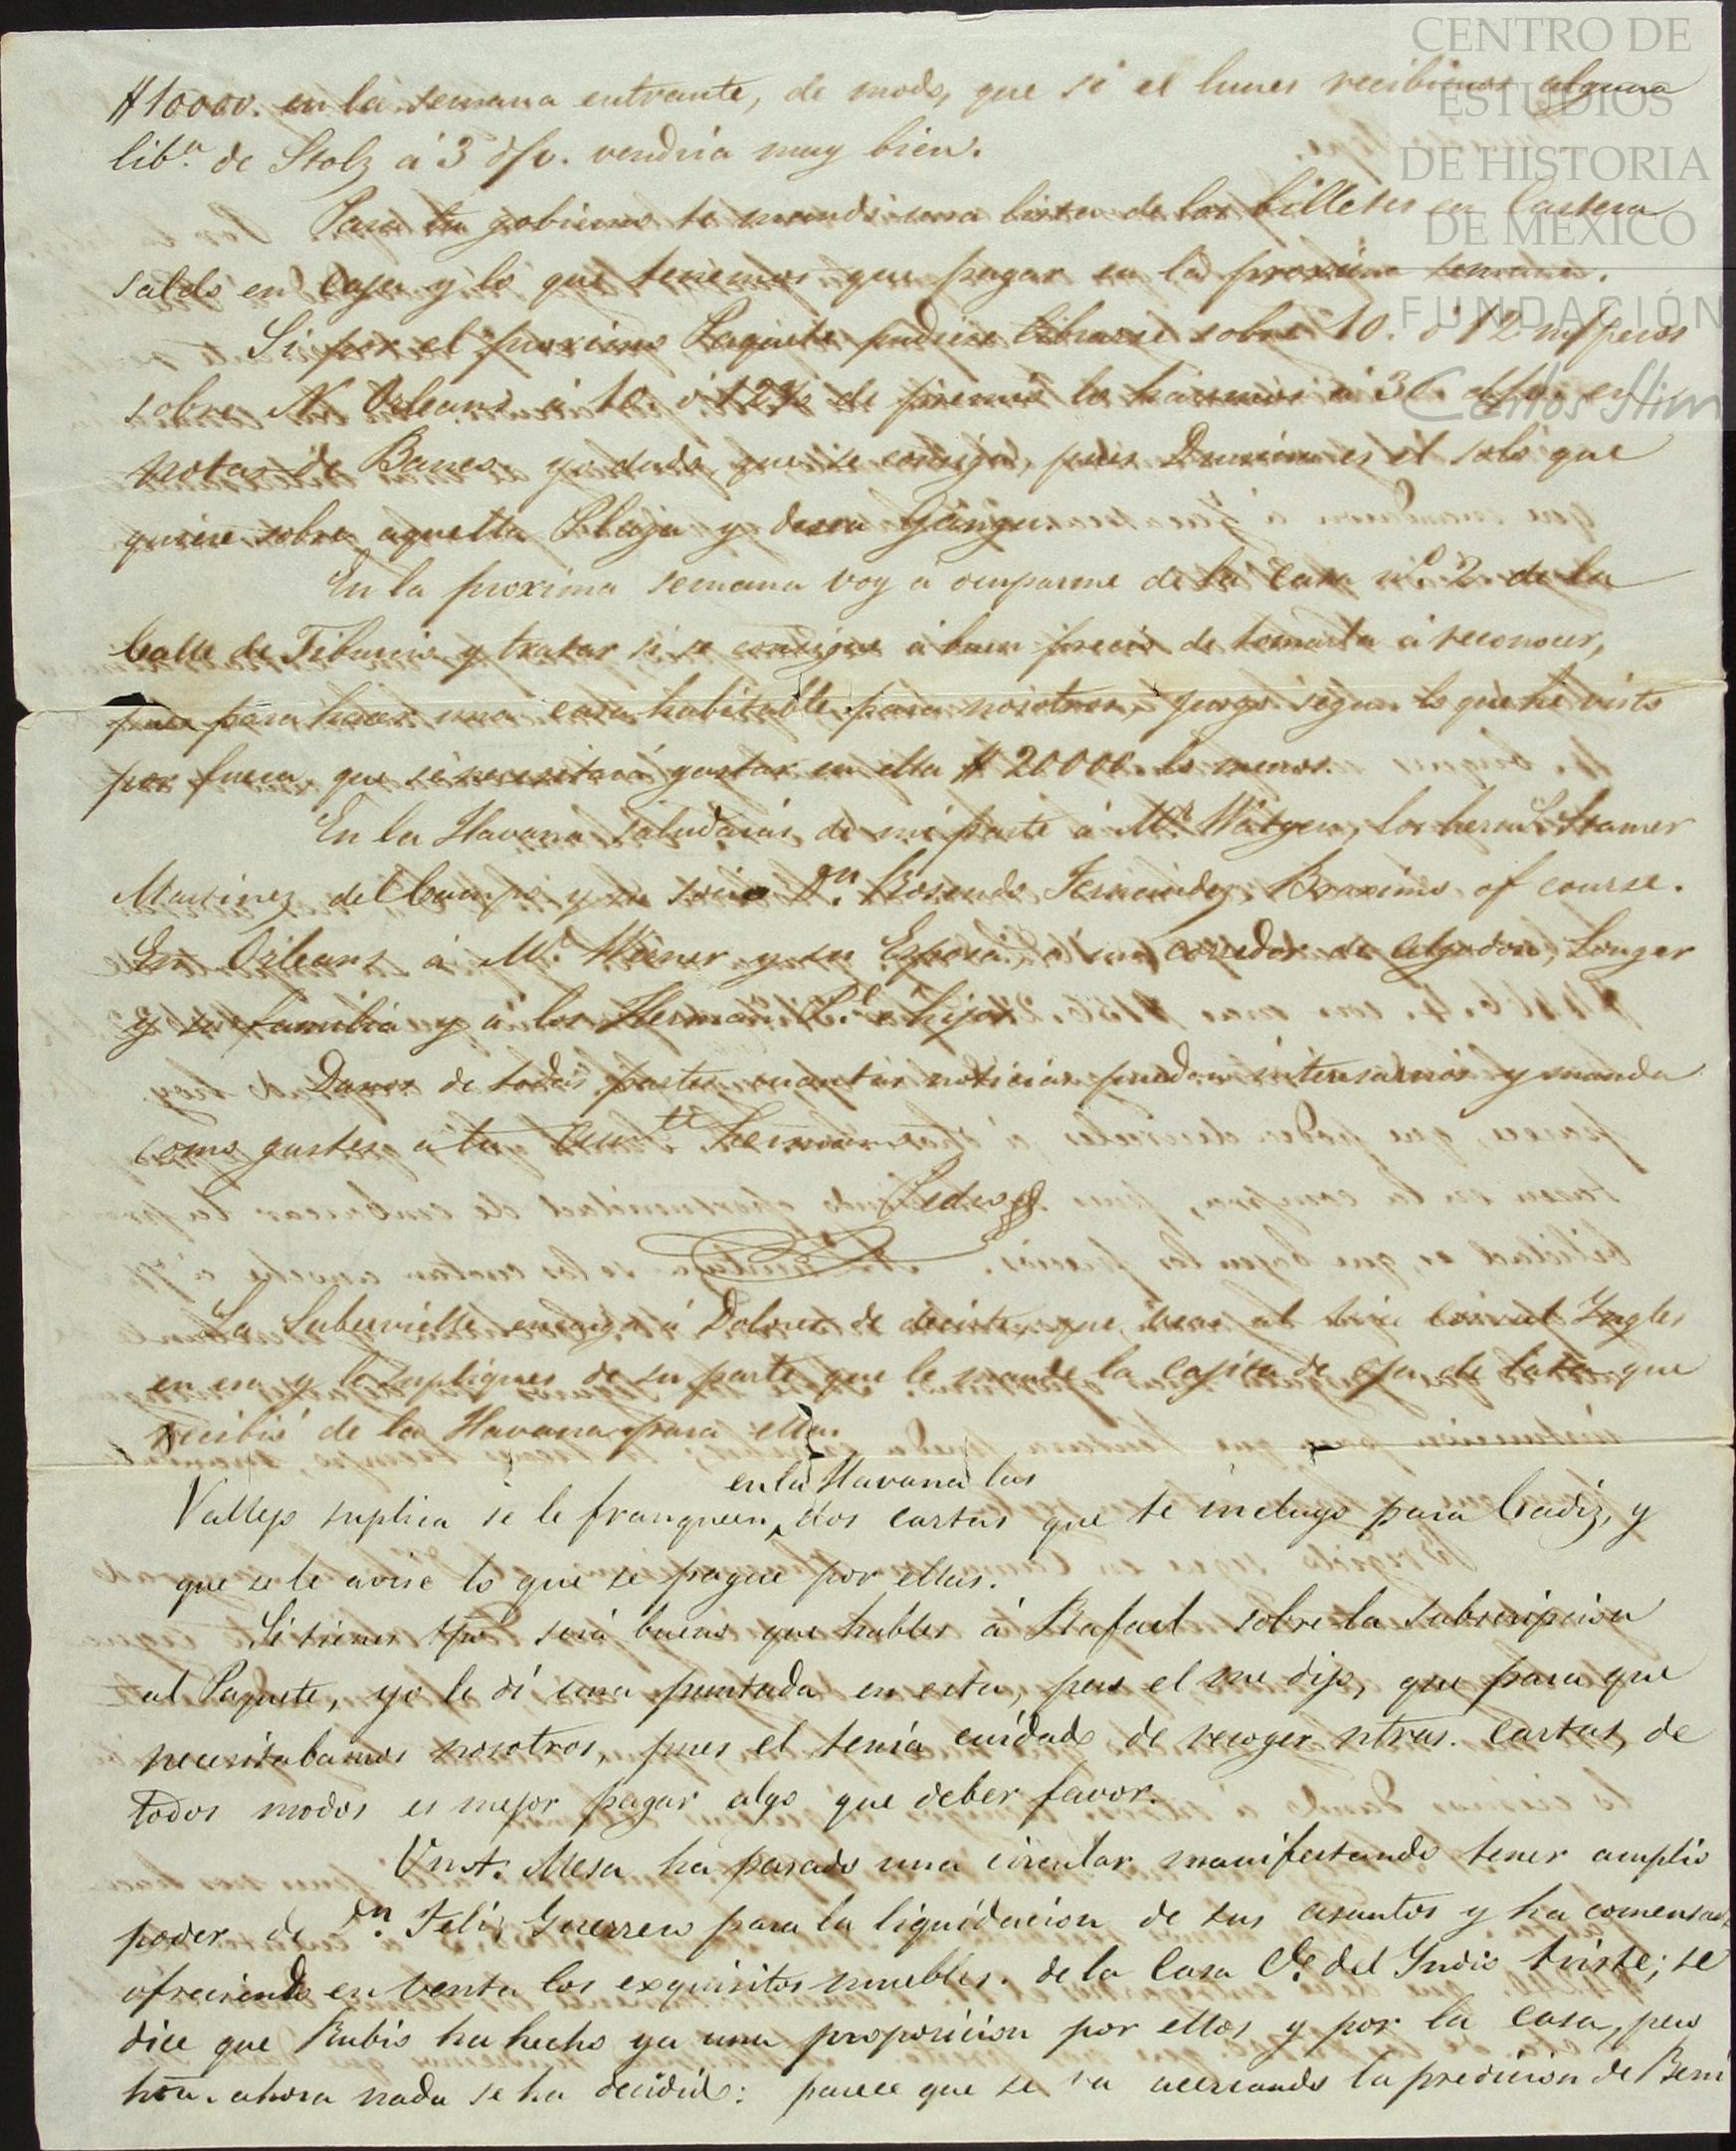 CENTRO DE
ESTUDIOS
DE HISTORIA
DE MEXICO
FUNDACIÓN
Carlos Slim
$10000. en la semana entrante, de modo, que si el lunes recibimos alguna
lib.ª de Stolz á 3 d/v. vendria muy bien.
Para tu gobierno te mando una lista de los billetes en Cartera
saldo en Caja y lo que tenemos que pagar en la proxima semana.
Si por el proximo Paquete pudiese librarse sobre 10. ó 12 m/pesos
sobre N. Orleans á 10 ó 12% de premio lo haremos á 30 d/v. en
notas de Banco. yo dudo, que se consiga, pues Drusina es el solo que
quiere sobre aquella Plaza y desea Ganga.
En la proxima semana voy á ocuparme de la Casa n.º 2 de la
Calle de Tiburcio y tratar si se consigue á buen precio de tomarla á reconocer,
pues para hacer una casa habitable para nosotros, juzgo segun lo que he visto
por fuera, que se necesitará gastar en ella $ 20000. lo menos.
En la Havana saludarás de mi parte á Mr. Wätgen, los herm.s Stamer
Martinez del Campo y su socio Dn. Rosendo Fernandez. Braximo of course.
En Orleans á Mr. Wiener y su Esposa, á un corredor de Algodon, Longer
y su familia y á los Herman P.e é hijos
Danos de todas partes cuantas noticias puedan interesarnos y manda
como gustes á tu Am.te hermano
Pedro
La Subervielle encarga á Dolores de decirte, que veas al Vice Consul Yngles
en esa y le supliques de su parte que le mande la cajita de oja de lata que
recibió de la Havana para ella.
en la Havana las
Vallejo suplica se le franqueen dos cartas que te incluyo para Cadiz, y
que se le avise lo que se pague por ellas.
Si tienes tpo será bueno que hables á Rafael sobre la subscripcion
al Paquete, yo le dí una puntada en esta, pero el me dijo, que para que
necesitabamos nosotros, pues el tenía cuidado de recoger ntras. cartas, de
todos modos es mejor pagar algo que deber favor.
Mesa ha pasado una circular manifestando tener amplio
poder de Dn. Feliz Guerrero para la liquidacion de sus asuntos y ha comensado
ofreciendo en venta los exquisitos muebles. de la Casa C.e del Yndio triste; se
dice que Rubio ha hecho ya una proposicion por ellos y por la casa, pero
hta. ahora nada se ha decidido: parece que se va acercando la predicion de